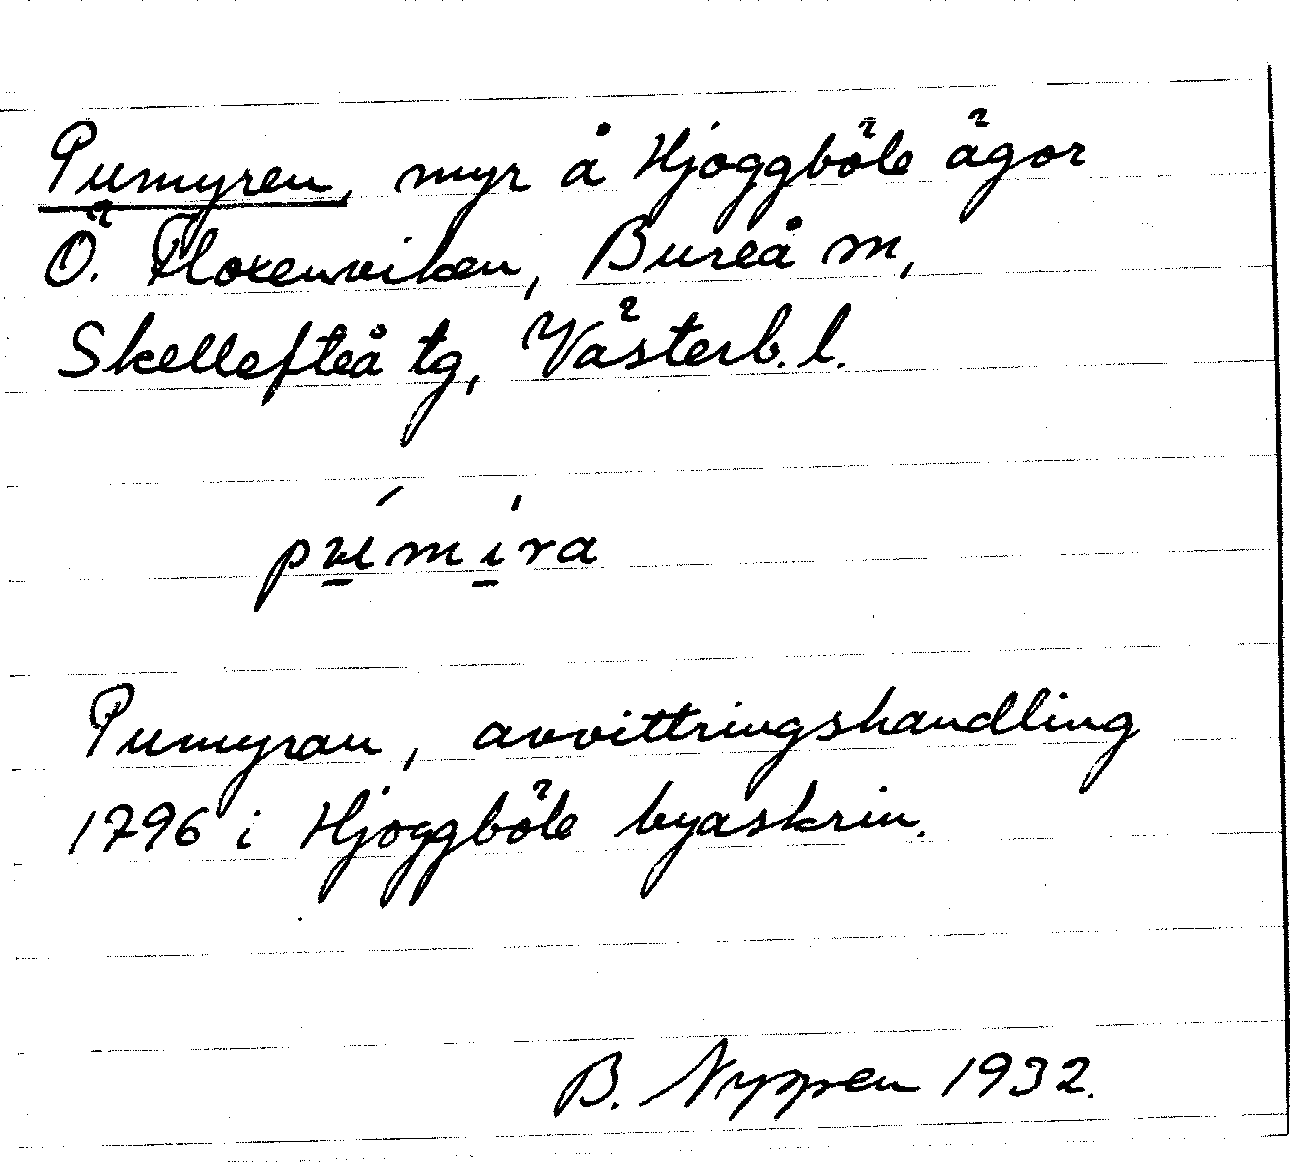 Pumyren, myr å Hjoggböle ägor
Ö. Floxenviken, Bureå sn,
Skellefteå tg, Västerb. l.
Pumyran, avvittringshandling
1796 i Hjoggböle byaskrin.
B. Nyppen 1932.